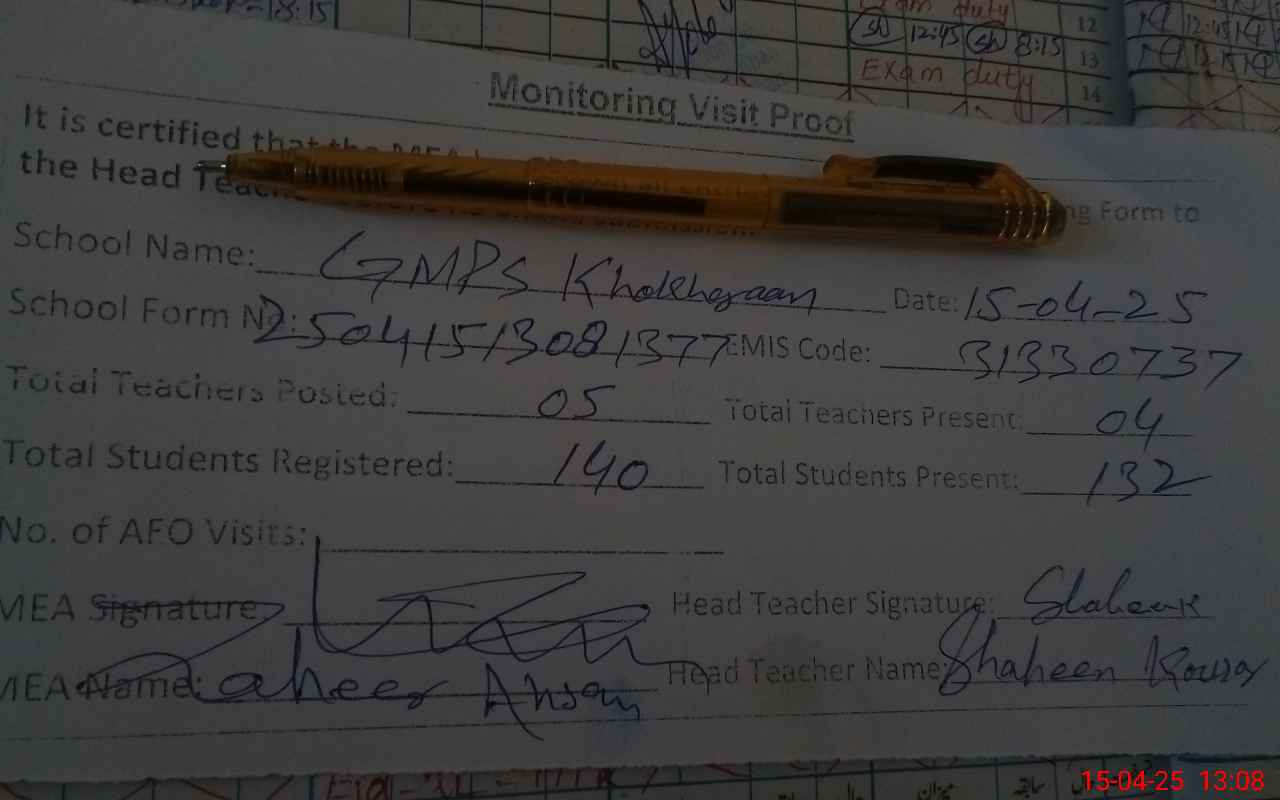 =18:15
Exam duty
12
sh 12:45 sh 8:15
13
Exam duty
14
Monitoring Visit Proof
It is certified that the MEA
the Head Teac ng Form to
School Name: GMPS Khokhgraan Date: 15-04-25
School Form No: 25041513081377 EMIS Code: 31330737
Total Teachers Posted: 05 Total Teachers Present: 04
Total Students Registered: 140 Total Students Present: 132
No. of AEO Visits:
MEA Signature: Head Teacher Signature: Shaheen K
MEA Name: Zaheer Ahsan Head Teacher Name: Shaheen Kousar
میزان
سابقہ
15-04-25 13:08